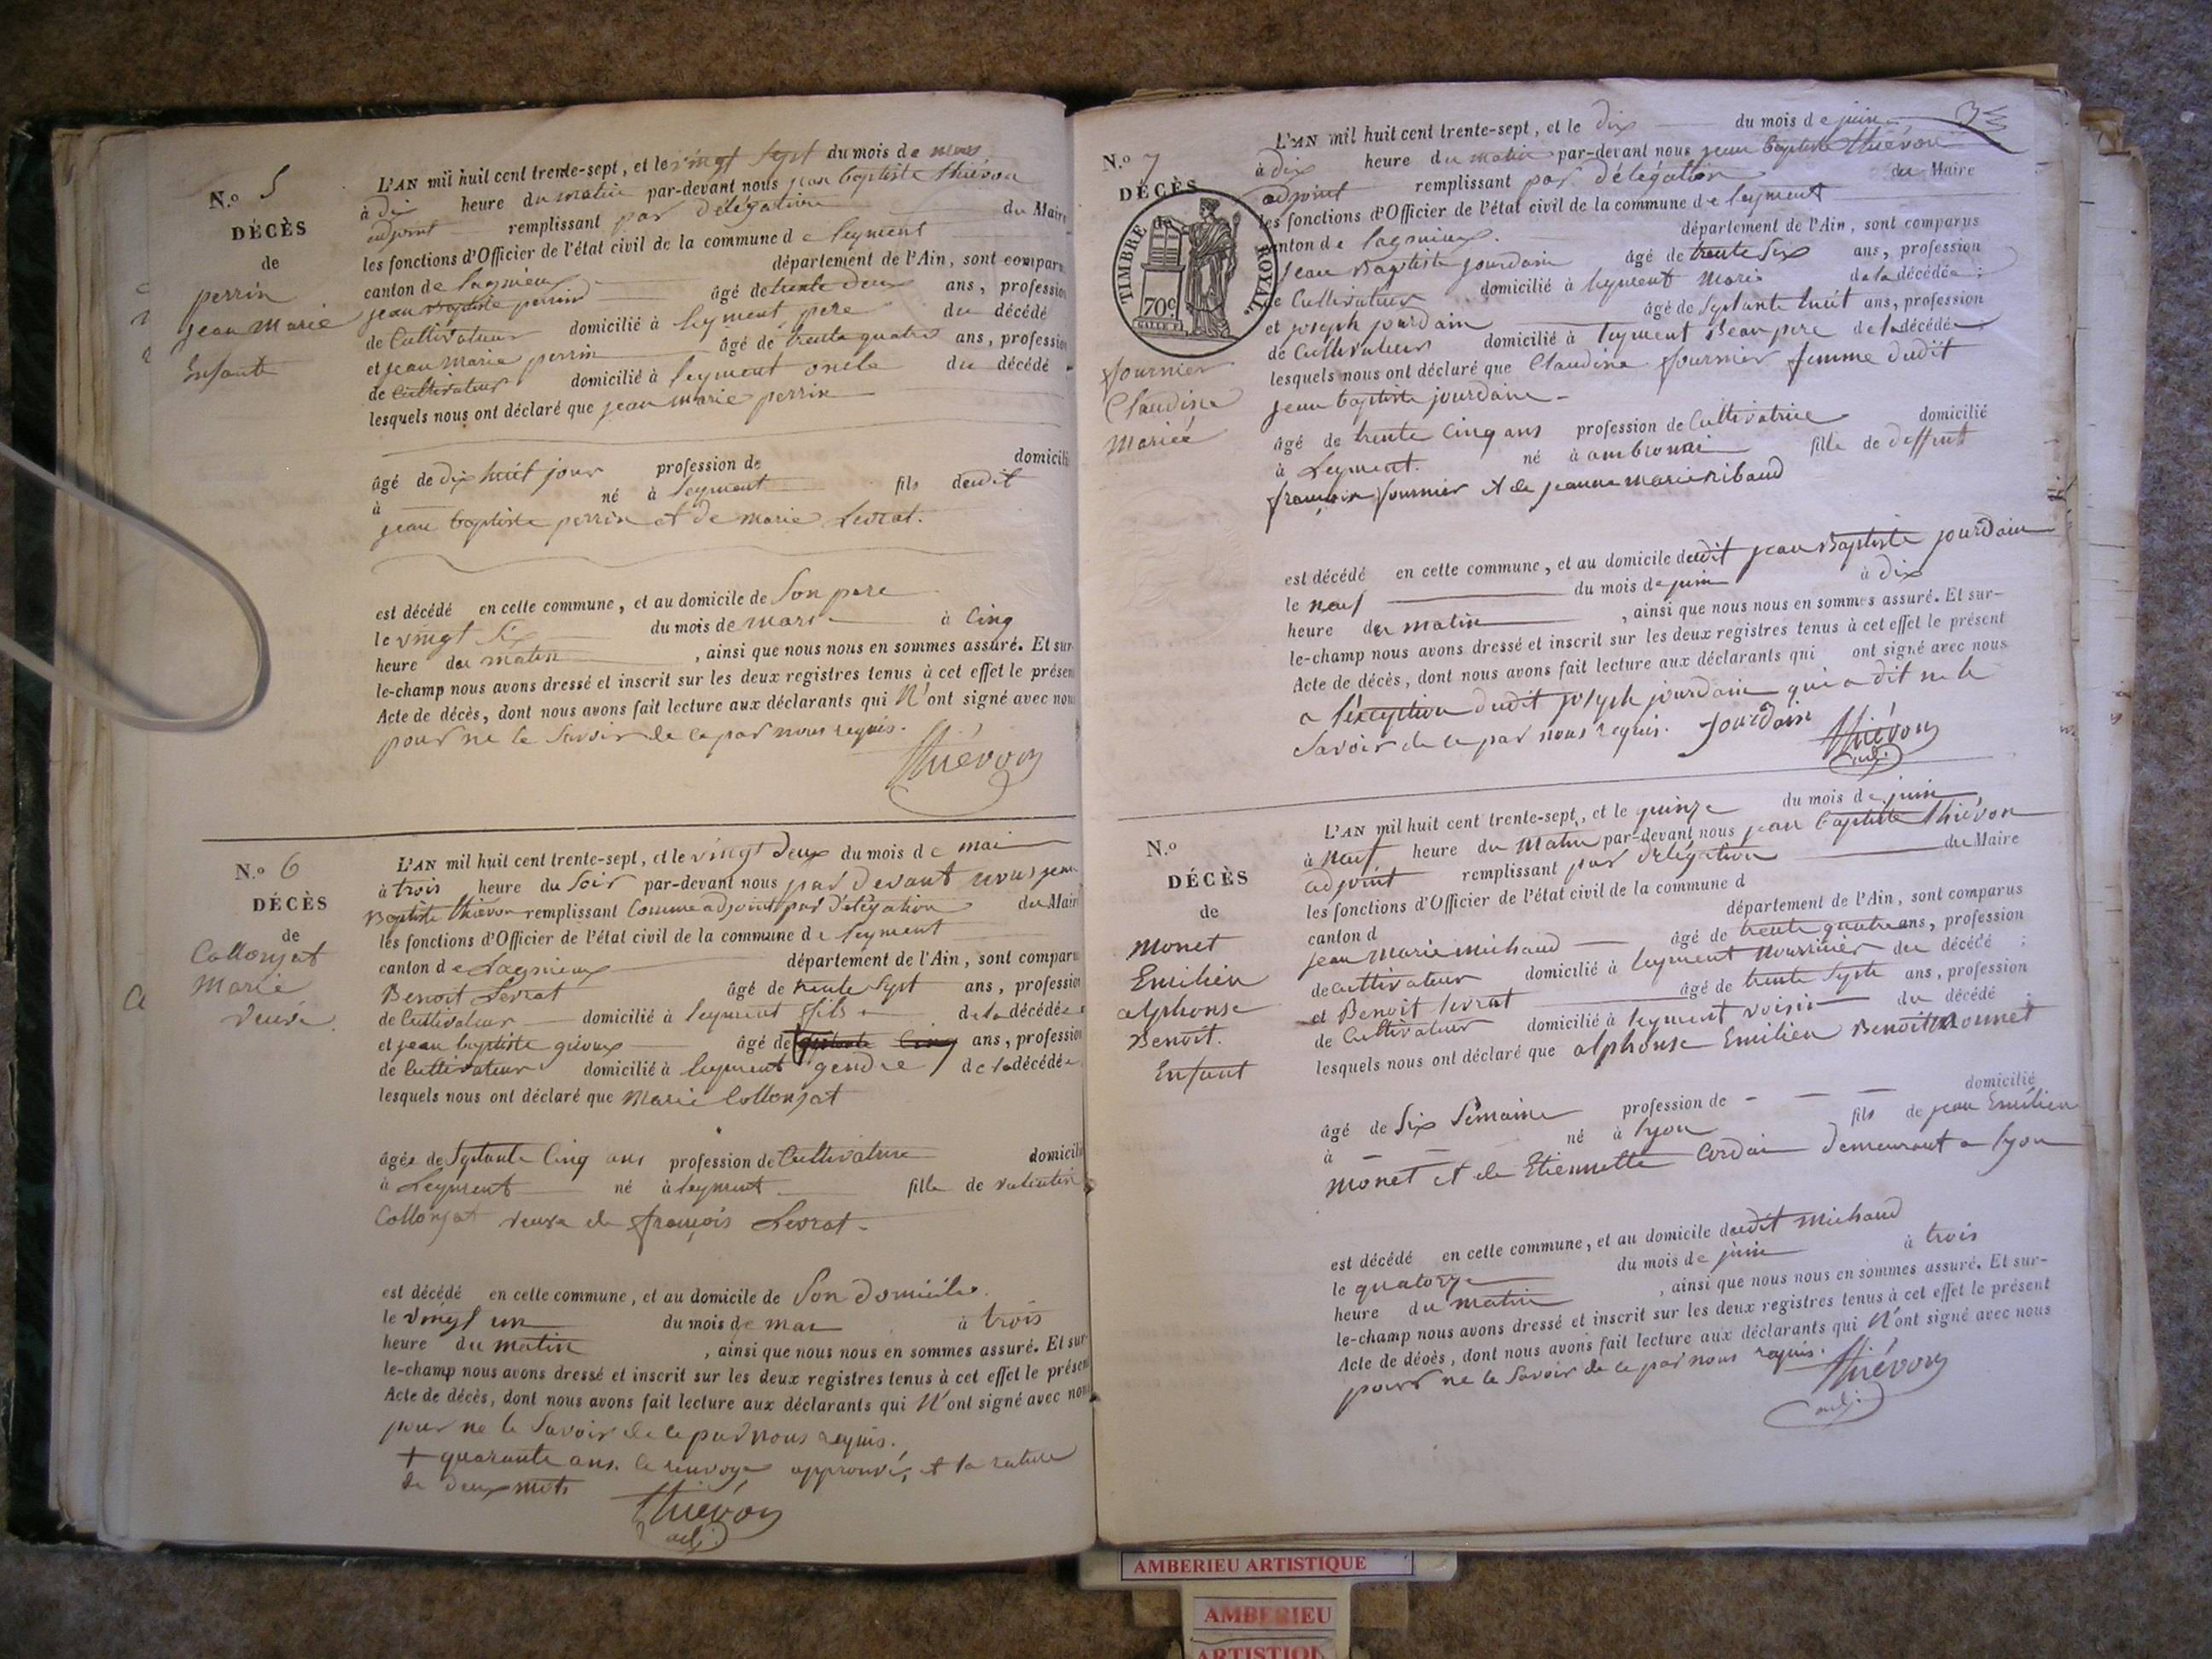 N.o 5
DÉCÈS
de
perrin
jean Marie
Enfant
L'AN mil huit cent trente-sept, et le vingt sept du mois de mars
à dix heure du matin par-devant nous jean baptiste thiévon
adjoint remplissant par délégation du Maire
les fonctions d'Officier de l'état civil de la commune de leyment
canton de lagnieux département de l'Ain, sont comparu
jean Baptiste perrin âgé de trente deux ans, profession
de Cultivateur domicilié à leyment pere du décédé
et jean marie perrin âgé de trente quatre ans, profession
de Cultivateur domicilié à leyment oncle du décédé
lesquels nous ont déclaré que jean marie perrin
âgé de dix huit jour profession de domicili
à né à leyment fils dudit
jean baptiste perrin et de marie Levrat.
est décédé en cette commune, et au domicile de Son pere
le vingt Six du mois de mars à Cinq
heure du matin, ainsi que nous nous en sommes assuré. Et sur-
le-champ nous avons dressé et inscrit sur les deux registres tenus à cet effet le présen
Acte de décès, dont nous avons fait lecture aux déclarants qui N'ont signé avec nous
pour ne le Savoir de ce par nous requis.
thiévon
N.o 6
DÉCÈS
de
Collonjat
Marie
Veuve
L'AN mil huit cent trente-sept, et le vingt deux du mois de mai
à trois heure du Soir par-devant nous par devant nous jean
Baptiste thiévon remplissant Comme adjoint par délégation du Mair
les fonctions d'Officier de l'état civil de la commune de leyment
canton de Lagnieux département de l'Ain, sont comparu
Benoit Levrat âgé de trente Sept ans, profession
de Cultivateur domicilié à leyment fils de la décédée
et jean baptiste giroux âgé de ans, profession
de Cultivateur domicilié à leyment gendre de la décédée
lesquels nous ont déclaré que Marie Collonjat
âgée de Septante Cinq ans profession de Cultivatrice domicili
à Leyment né à leyment fille de valentin
Collonjat veuve de françois Levrat.
est décédé en cette commune, et au domicile de Son domicile.
le vingt un du mois de mai à trois
heure du matin, ainsi que nous nous en sommes assuré. Et sur-
le-champ nous avons dressé et inscrit sur les deux registres tenus à cet effet le présen
Acte de décès, dont nous avons fait lecture aux déclarants qui N'ont signé avec nou
pour ne le Savoir de ce par nous requis.
+ quarante ans. le renvoye approuvé, et la rature
de deux mots
thiévon
adj.
3
N.o 7
DÉCÈS
TIMBRE ROYAL.
70c
fournier
Claudine
Mariée
L'AN mil huit cent trente-sept, et le dix du mois de juin
à dix heure du matin par-devant nous jean baptiste thiévon
adjoint remplissant par délégation du Maire
les fonctions d'Officier de l'état civil de la commune de leyment
canton de lagnieux. département de l'Ain, sont comparus
Jean Baptiste jourdain âgé de trente Six ans, profession
de Cultivateur domicilié à leyment Mari de la décédée;
et joseph jourdain âgé de Septante huit ans, profession
de Cultivateur domicilié à leyment Beau pere de la décédée
lesquels nous ont déclaré que Claudine fournier femme dudit
jean baptiste jourdain
âgé de trente Cinq ans profession de Cultivatrice domicilié
à Leyment. né à ambronai fille de deffunt
françois fournier et de jeanne marie ribaud
est décédé en cette commune, et au domicile dudit jean Baptiste jourdain
le neuf du mois de juin à dix
heure du matin, ainsi que nous nous en sommes assuré. Et sur-
le-champ nous avons dressé et inscrit sur les deux registres tenus à cet effet le présent
Acte de décès, dont nous avons fait lecture aux déclarants qui ont signé avec nous
a l'éxception dudit joseph jourdain qui a dit ne le
Savoir de ce par nous requis. Jourdain thiévon
adj.
N.o
DÉCÈS
de
Monet
Emilien
alphonse
Benoit.
Enfant
L'AN mil huit cent trente-sept, et le quinze du mois de juin
à neuf heure du matin par-devant nous jean baptiste thiévon
adjoint remplissant par délégation du Maire
les fonctions d'Officier de l'état civil de la commune d
canton d département de l'Ain, sont comparus
jean Marie michaud âgé de trente quatre ans, profession
de cultivateur domicilié à leyment nourricier du décédé;
et Benoit levrat âgé de trente Septe ans, profession
de Cultivateur domicilié à leyment voisin du décédé
lesquels nous ont déclaré que alphonse Emilien Benoit Monnet
âgé de Six Semaine profession de domicilié
à né à lyon fils de jean Emilien
Monet et de Etiennette Cordai demeurant a lyon
est décédé en cette commune, et au domicile dudit michaud
le quatorze du mois de juin à trois
heure du matin, ainsi que nous nous en sommes assuré. Et sur-
le-champ nous avons dressé et inscrit sur les deux registres tenus à cet effet le présent
Acte de décès, dont nous avons fait lecture aux déclarants qui N'ont signé avec nous
pour ne le Savoir de ce par nous requis. thiévon
adj.
AMBERIEU ARTISTIQUE
AMBERIEU
ARTISTIQ